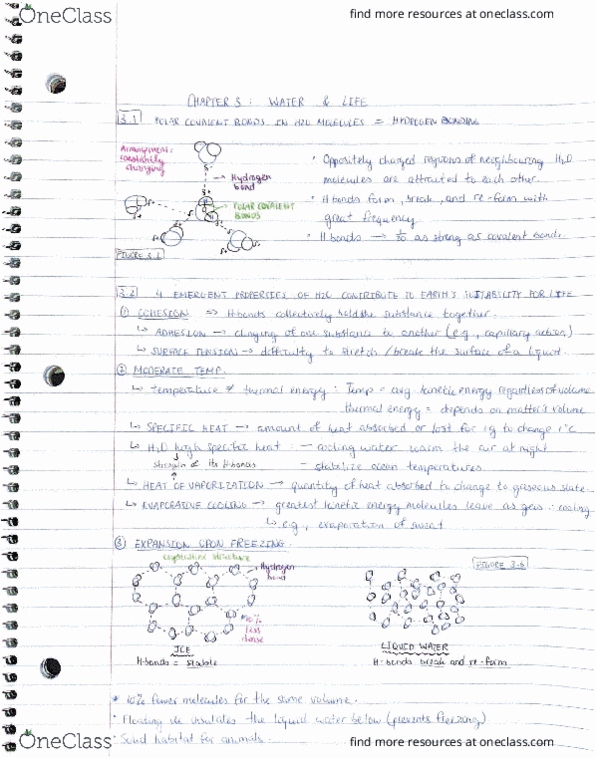 OneClass
find more resources at oneclass.com
CHAPTER 3: WATER & LIFE
3.1 POLAR COVALENT BONDS IN H2O MOLECULES = HYDROGEN BONDING
Arrangement: constantly changing
Hydrogen bond
POLAR COVALENT BONDS
FIGURE 3.2
• Oppositely charged regions of neighbouring H2O
molecules are attracted to each other.
• H bonds form, break, and re-form with
great frequency.
• H bonds → 1/20 as strong as covalent bonds.
3.2 4 EMERGENT PROPERTIES OF H2O CONTRIBUTE TO EARTH'S SUITABILITY FOR LIFE
① COHESION => H-bonds collectively hold the substance together.
↳ ADHESION → clinging of one substance to another (e.g., capillary action)
↳ SURFACE TENSION → difficulty to stretch / break the surface of a liquid.
② MODERATE TEMP.
↳ temperature ≠ thermal energy: Temp = avg. kinetic energy regardless of volume
thermal energy = depends on matter's volume
↳ SPECIFIC HEAT → amount of heat absorbed or lost for 1g to change 1°C
↳ H2O high specific heat: – cooling water warm the air at night
its H-bonds – stabilize ocean temperatures
↳ HEAT OF VAPORIZATION → quantity of heat absorbed to change to gaseous state.
↳ EVAPORATIVE COOLING → greatest kinetic energy molecules leave as gas: cooling
↳ e.g., evaporation of sweat
③ EXPANSION UPON FREEZING.
crystalline structure
Hydrogen bond
FIGURE 3.6
10% less dense
ICE
H-bonds = stable
LIQUID WATER
H-bonds break and re-form
* 10% fewer molecules for the same volume.
• Floating ice insulates the liquid water below (prevents freezing)
• Solid habitat for animals.
OneClass
find more resources at oneclass.com